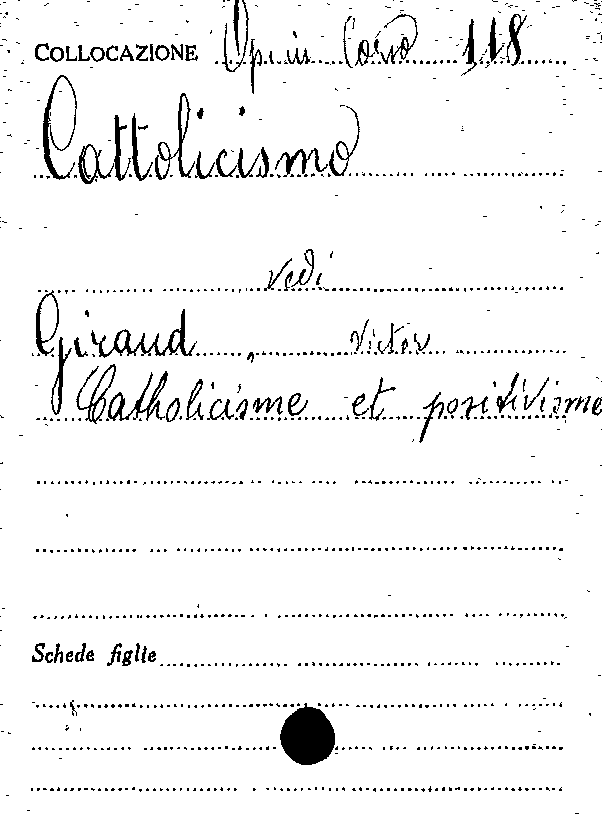 COLLOCAZIONE Op. in Corso 118
Cattolicismo
vedi
Giraud, Victor
Catholicisme et positivisme
Schede figlie